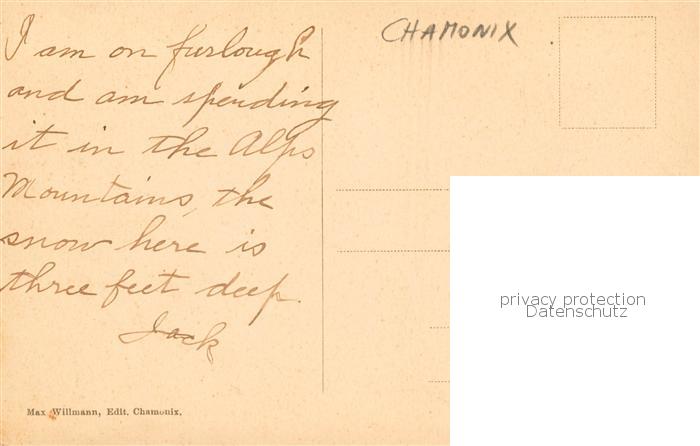 CHAMONIX
I am on furlough
and am spending
it in the Alps
Mountains, the
snow here is
three feet deep.
Jack
Max Willmann, Edit. Chamonix.
privacy protection
Datenschutz